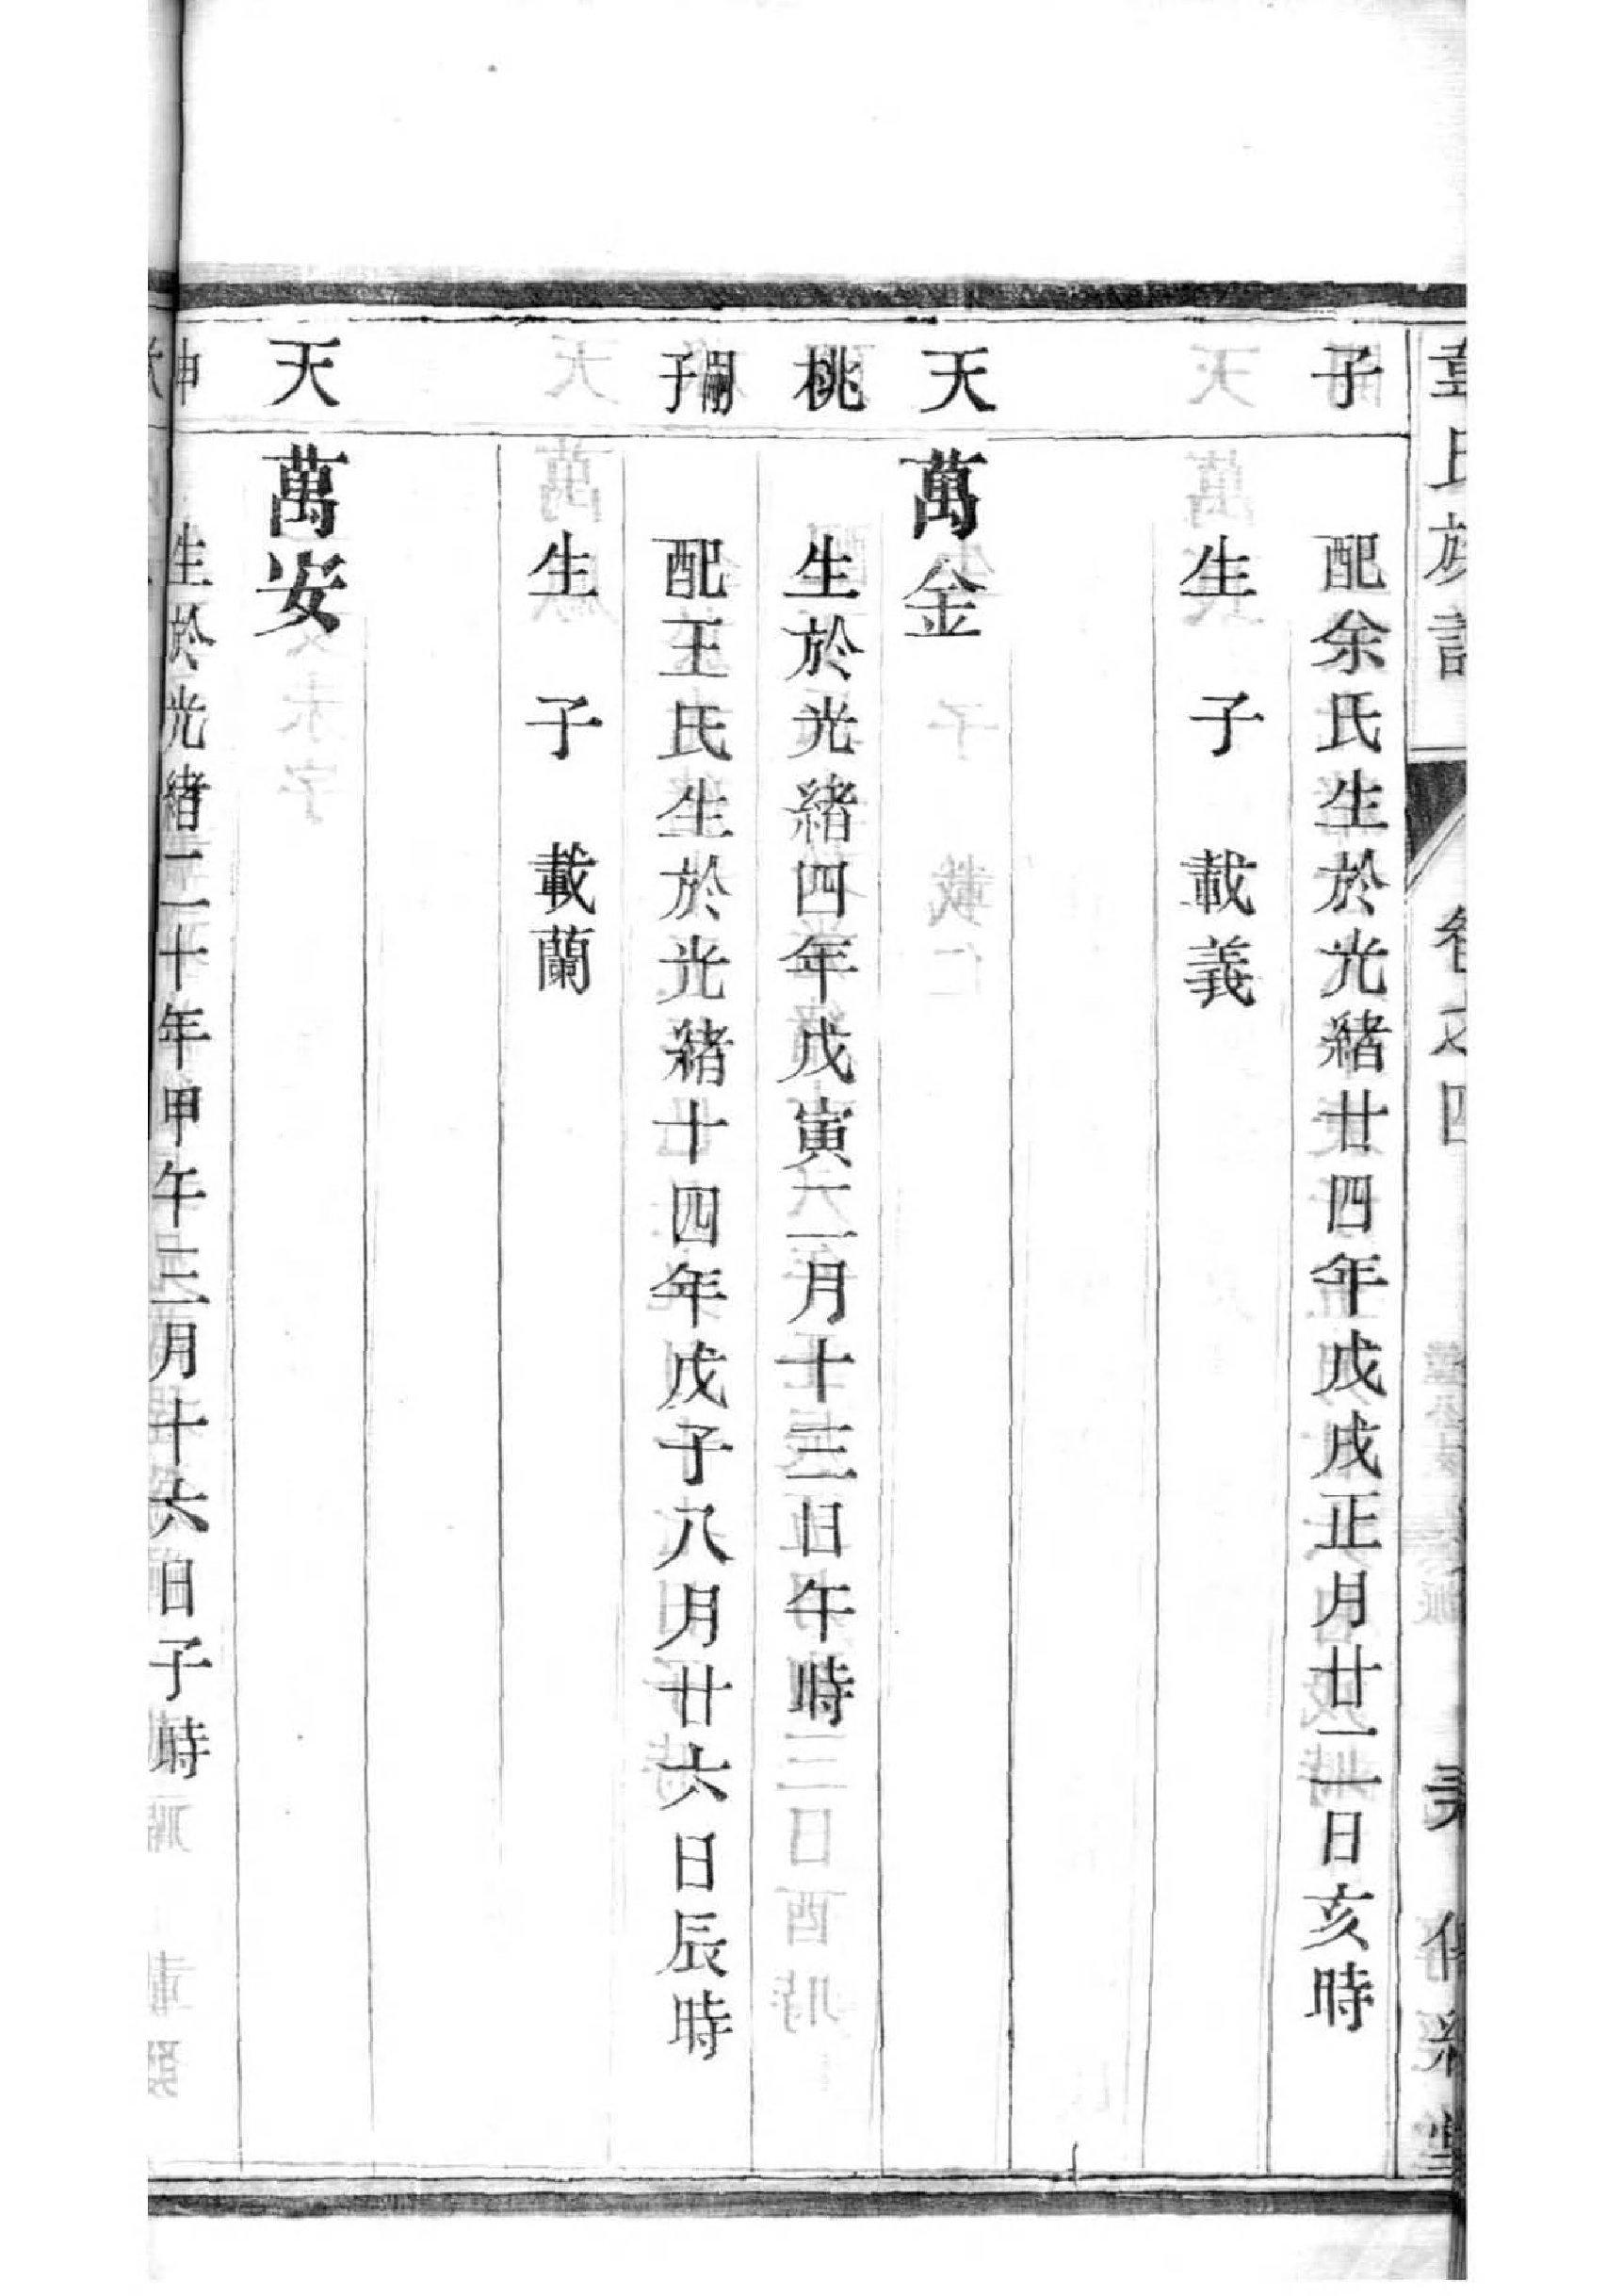 氏族譜 卷之四
子
配余氏生於光緒廿四年戊戌正月廿二日亥時
生 子 載義
天
萬金
桃
生於光緒四年戊寅二月十三日午時
子嗣
配王氏生於光緒十四年戊子八月廿六日辰時
生 子 載蘭
天
萬安
生於光緒二十年甲午三月十六日子時